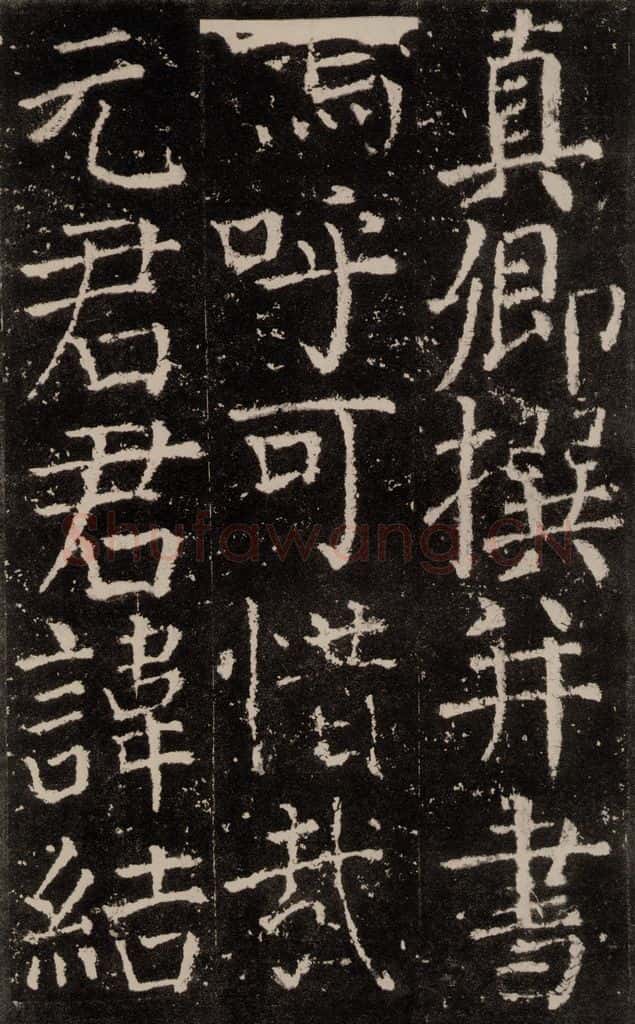 真卿撰并書
嗚呼可惜哉
元君君諱結
Shufawang.CN